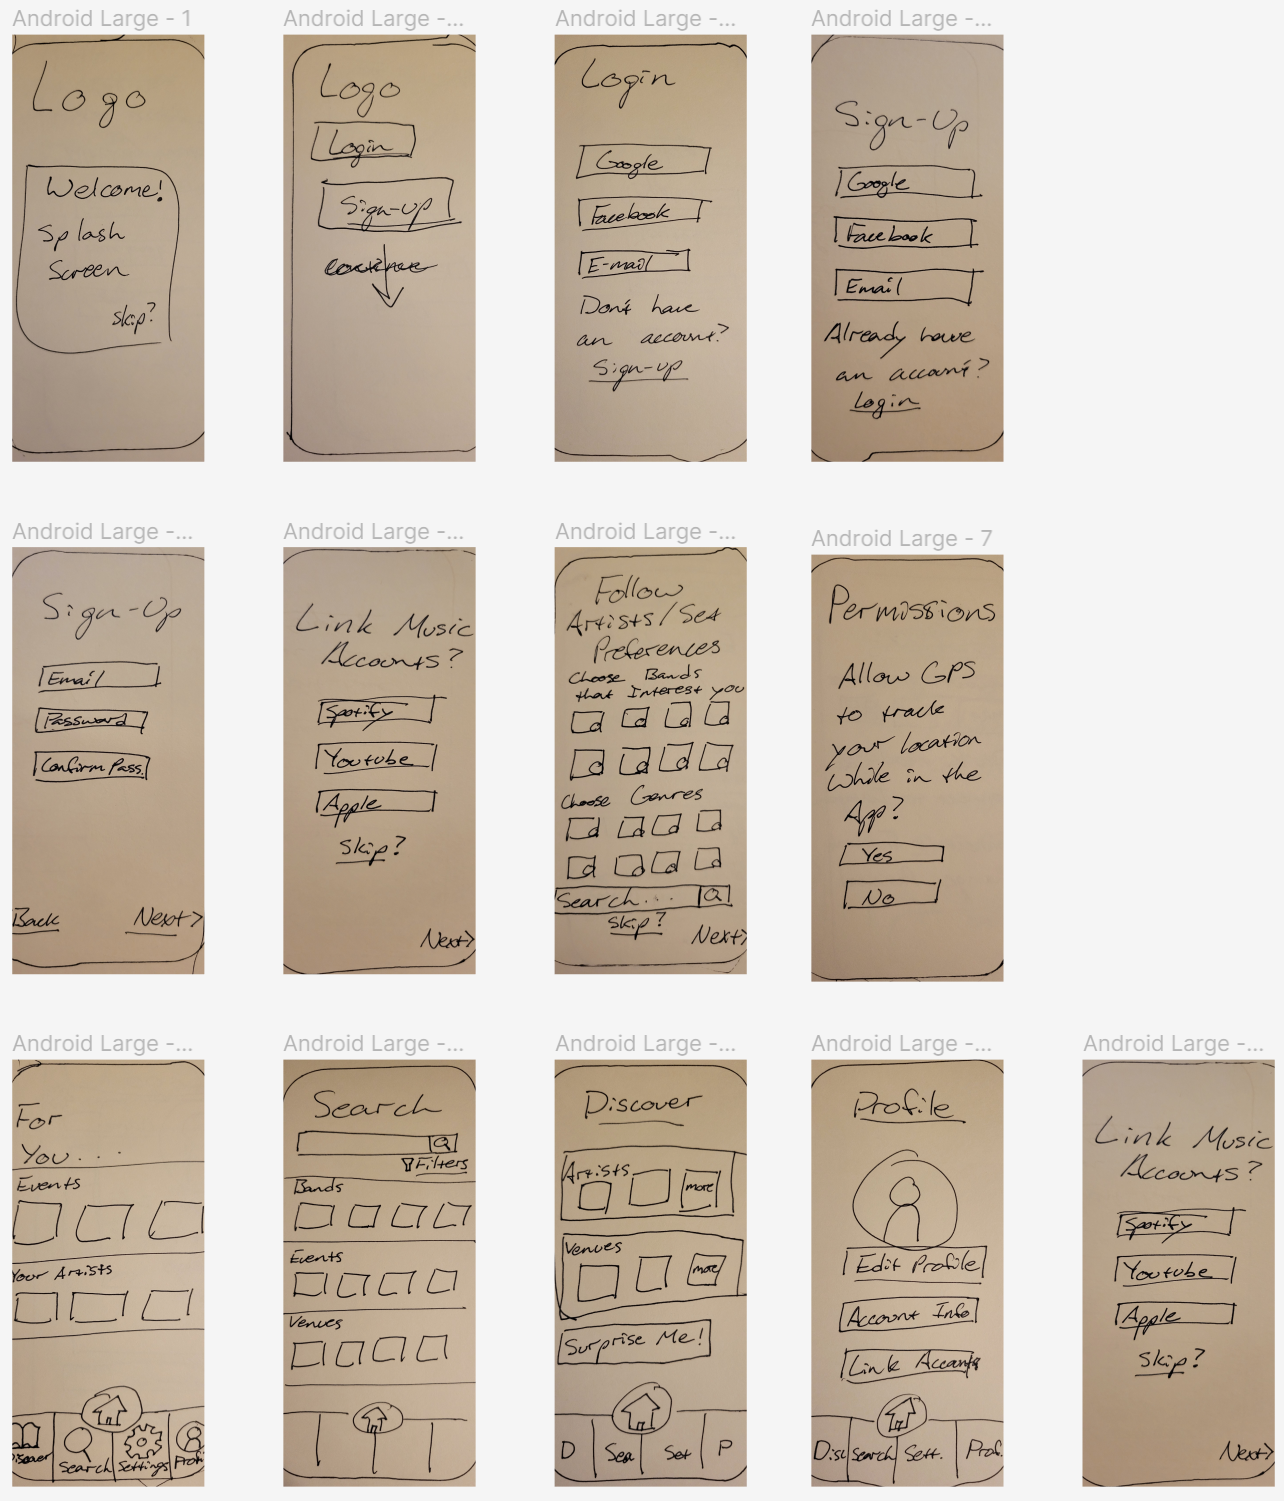 Android Large - 1
Logo
Welcome!
Splash
Screen
Skip?
Android Large -...
Logo
Login
Sign-up
continue
Android Large -...
Login
Google
Facebook
E-mail
Don't have
an account?
Sign-up
Android Large -...
Sign-Up
Google
Facebook
Email
Already have
an account?
Login
Android Large -...
Sign-Up
Email
Password
Confirm Pass.
Back
Next>
Android Large -...
Link Music
Accounts?
Spotify
Youtube
Apple
Skip?
Next>
Android Large -...
Follow
Artists/Set
Preferences
Choose Bands
that Interest you
Choose Genres
Search...
Skip?
Next>
Android Large - 7
Permissions
Allow GPS
to track
your location
While in the
App?
Yes
No
Android Large -...
For
You...
Events
Your Artists
iscover
Search
Settings
Profi
Android Large -...
Search
Filters
Bands
Events
Venues
Android Large -...
Discover
Artists
more
Venues
more
Surprise Me!
D
Sea
Set
P
Android Large -...
Profile
Edit Profile
Account Info
Link Accounts
Disc
Search
Sett.
Prof.
Android Large -...
Link Music
Accounts?
Spotify
Youtube
Apple
Skip?
Next>